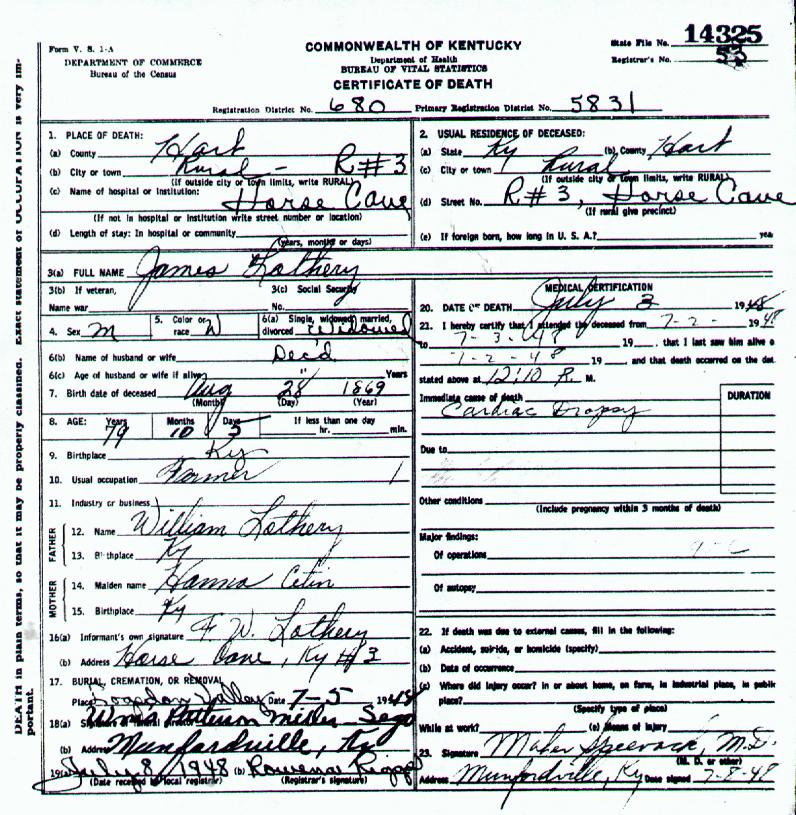 Form V. S. 1-A
DEPARTMENT OF COMMERCE
Bureau of the Census
COMMONWEALTH OF KENTUCKY
Department of Health
BUREAU OF VITAL STATISTICS
CERTIFICATE OF DEATH
State File No. 14325
Registrar's No. 53
Registration District No. 680 Primary Registration District No. 5831
1. PLACE OF DEATH:
(a) County Hart
(b) City or town Rural - R#3
(If outside city or town limits, write RURAL)
(c) Name of hospital or institution: Horse Cave
(If not in hospital or institution write street number or location)
(d) Length of stay: In hospital or community
(years, months or days)
2. USUAL RESIDENCE OF DECEASED:
(a) State Ky (b) County Hart
(c) City or town Rural
(If outside city or town limits, write RURAL)
(d) Street No. R#3, Horse Cave
(If rural give precinct)
(e) If foreign born, how long in U. S. A.? yea
3(a) FULL NAME James Lothery
3(b) If veteran, 3(c) Social Security
Name war No.
4. Sex M 5. Color or race W 6(a) Single, widowed, married, divorced Widowed
6(b) Name of husband or wife Dec'd
6(c) Age of husband or wife if alive " Years
7. Birth date of deceased Aug 28 1869
(Month) (Day) (Year)
8. AGE: Years Months Days If less than one day
79 10 5 hr. min.
9. Birthplace Ky
10. Usual occupation Farmer 1
11. Industry or business
FATHER
12. Name William Lothery
13. Birthplace Ky
MOTHER
14. Maiden name Hanna
15. Birthplace Ky
16(a) Informant's own signature F. W. Lothery
(b) Address Horse Cave, Ky #3
17. BURIAL, CREMATION, OR REMOVAL
Place Logsdon Valley Date 7-5 1948
18(a) Signature of funeral director Patterson Miller Sego
(b) Address Munfordville, Ky
19(a) July 8, 1948 (b) Rowena Riggs
(Date received by local registrar) (Registrar's signature)
MEDICAL CERTIFICATION
20. DATE OF DEATH July 3 1948
21. I hereby certify that I attended the deceased from 7-2- 1948
to 7-3-48 19 , that I last saw him alive o
7-2-48 19 , and that death occurred on the dat
stated above at 12:10 P. M.
Immediate cause of death DURATION
Cardiac Dropsy
Due to
Other conditions
(Include pregnancy within 3 months of death)
Major findings:
Of operations
Of autopsy
22. If death was due to external causes, fill in the following:
(a) Accident, suicide, or homicide (specify)
(b) Date of occurrence
(c) Where did injury occur? in or about home, on farm, in industrial place, in public
place?
(Specify type of place)
While at work? (e) Means of injury
23. Signature Speevack, M.D.
(M. D. or other)
Address Munfordville, Ky Date signed 7-8-48
DEATH in plain terms, so that it may be properly classified. Exact statement of OCCUPATION is very im-
portant.